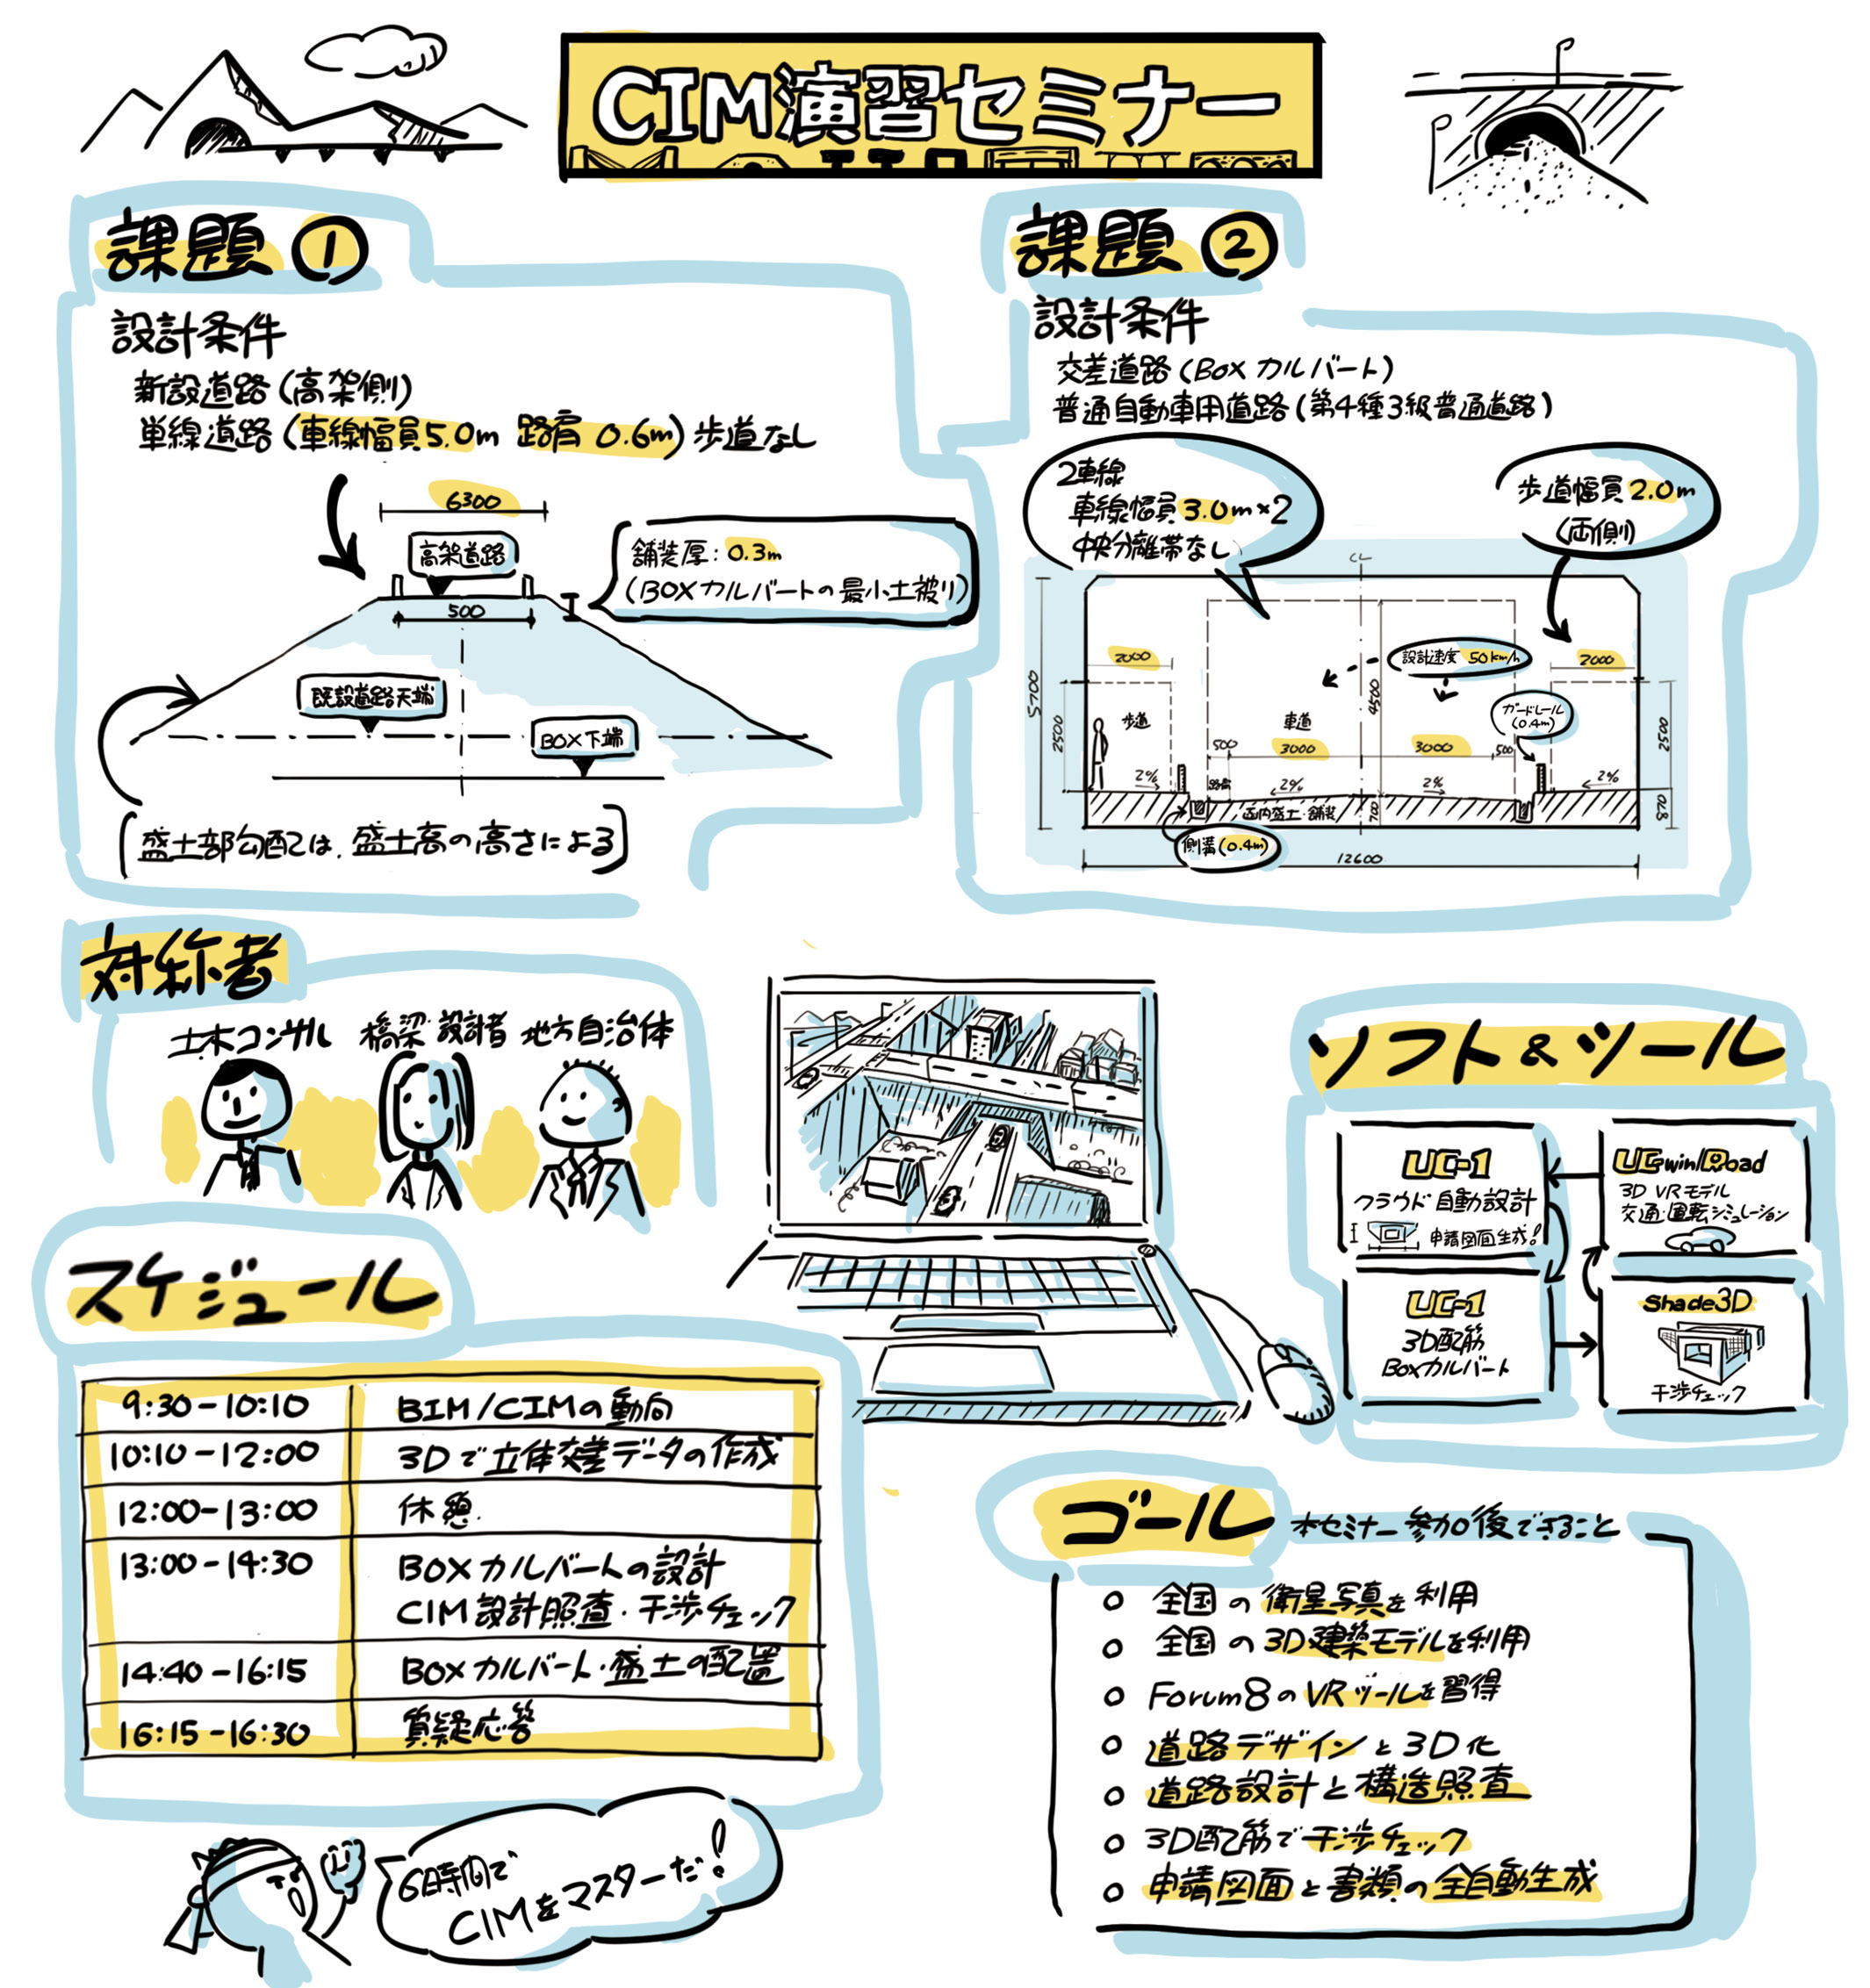 CIM演習セミナー
課題 ①
設計条件
新設道路(高架側)
単線道路(車線幅員5.0m 路肩 0.6m)歩道なし
6300
高架道路
500
舗装厚:0.3m
(BOXカルバートの最小土被り)
既設道路天端
BOX下端
盛土部勾配は、盛土高の高さによる
課題 ②
設計条件
交差道路(Boxカルバート)
普通自動車用道路(第4種3級普通道路)
2車線
車線幅員3.0m×2
中央分離帯なし
歩道幅員2.0m
(両側)
CL
5700
2500
2000
歩道
設計速度 50km/h
4500
車道
2000
ガードレール
(0.4m)
2500
500
3000
3000
500
2%
路肩
2%
2%
2%
函内盛土・舗装
700
870
側溝(0.4m)
12600
対称者
土木コンサル 橋梁設計者 地方自治体
ソフト&ツール
UC-1
クラウド自動設計
申請図面生成!
UC-win/Road
3D VRモデル
交通・運転シミュレーション
UC-1
3D配筋
Boxカルバート
Shade3D
干渉チェック
スケジュール
9:30-10:10 BIM/CIMの動向
10:10-12:00 3Dで立体交差データの作成
12:00-13:00 休憩
13:00-14:30 BOXカルバートの設計
CIM設計照査・干渉チェック
14:40-16:15 BOXカルバート・盛土の配置
16:15-16:30 質疑応答
6時間で
CIMをマスターだ!
ゴール 本セミナー参加後できること
全国の衛星写真を利用
全国の3D建築モデルを利用
Forum8のVRツールを習得
道路デザインと3D化
道路設計と構造照査
3D配筋で干渉チェック
申請図面と書類の全自動生成